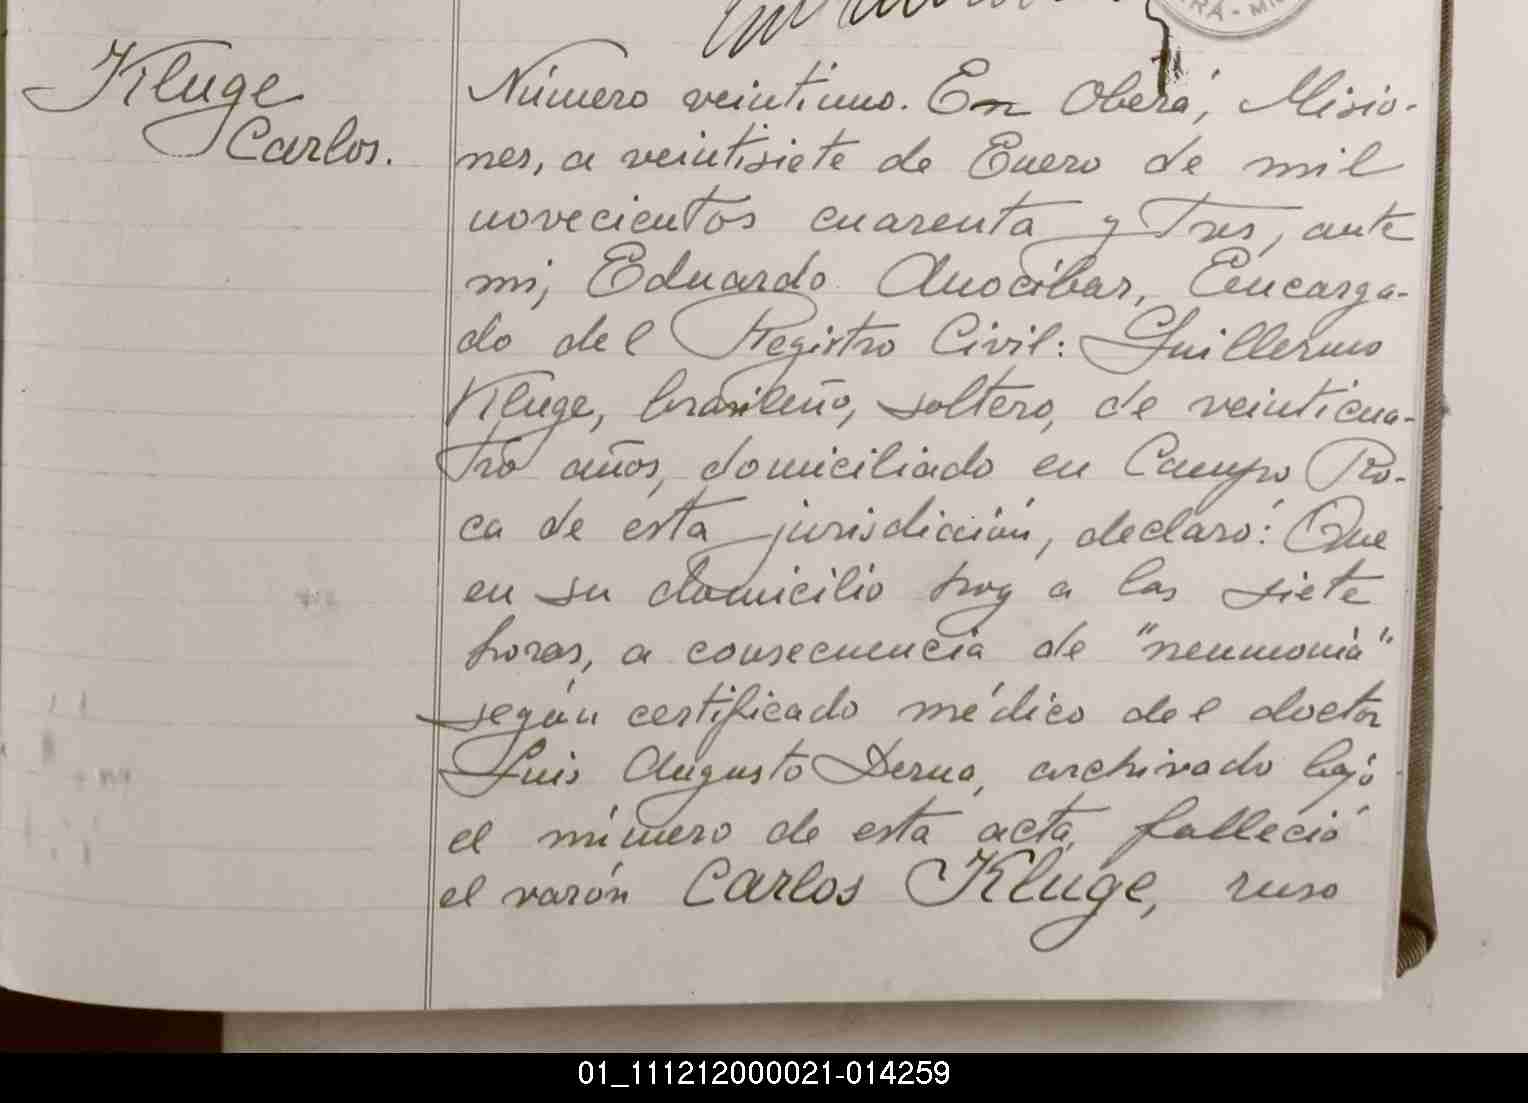 RÁ - MI
Kluge
Carlos.
Número veintiuno. En Oberá, Misio-
nes, a veintisiete de Enero de mil
novecientos cuarenta y Tres, ante
mi, Eduardo Anocibar, Encarga-
do del Registro Civil: Guillermo
Kluge, brasileño, soltero, de veinticua-
tro años, domiciliado en Campo Ro-
ca de esta jurisdicción, declaró: Que
en su domicilio hoy a las siete
horas, a consecuencia de "neumonía"
según certificado médico del doctor
Luis Augusto Derna, archivado bajo
el número de esta acta, falleció
el varón Carlos Kluge, ruso
01_111212000021-014259